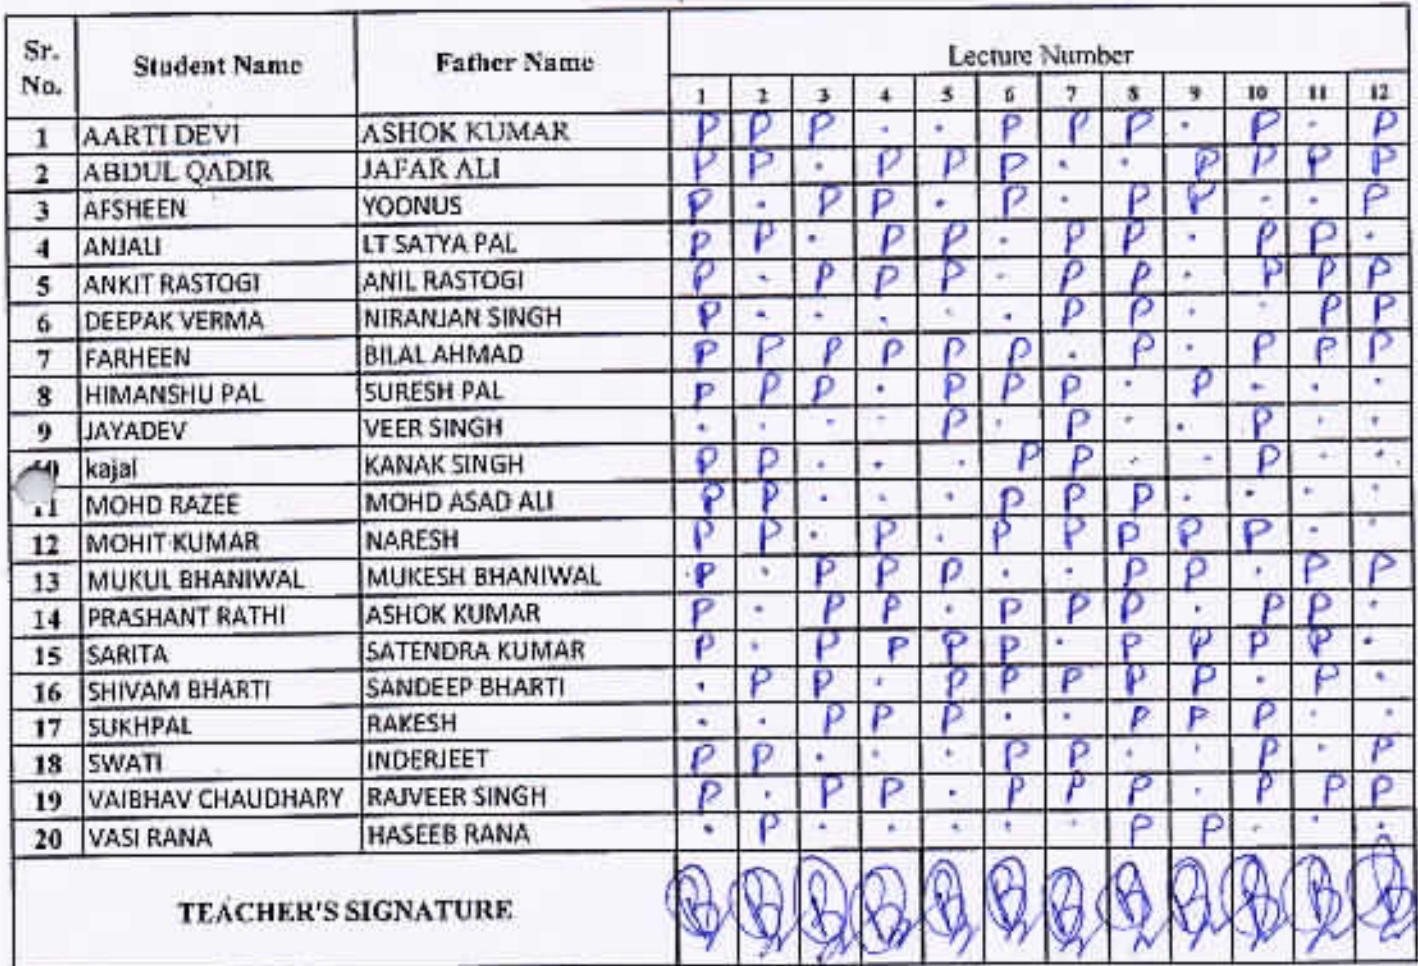 Lecture Number
Sr. No. Student Name Father Name 1 2 3 4 5 6 7 8 9 10 11 12
1 AARTI DEVI ASHOK KUMAR P P P . . P P P . P . P
2 ABDUL QADIR JAFAR ALI P P . P P P . . P P P P
3 AFSHEEN YOONUS P . P P . P . P P . . P
4 ANJALI LT SATYA PAL P P . P P . P P . P P .
5 ANKIT RASTOGI ANIL RASTOGI P . P P P . P P . P P P
6 DEEPAK VERMA NIRANJAN SINGH P . . . . . P P . . P P
7 FARHEEN BILAL AHMAD P P P P P P . P . P P P
8 HIMANSHU PAL SURESH PAL P P P . P P P . P . . .
9 JAYADEV VEER SINGH . . . . P . P . . P . .
10 kajal KANAK SINGH P P . . . P P . . P . .
11 MOHD RAZEE MOHD ASAD ALI P P . . . P P P . . . .
12 MOHIT KUMAR NARESH P P . P . P P P P P . .
13 MUKUL BHANIWAL MUKESH BHANIWAL P . P P P . . P P . P P
14 PRASHANT RATHI ASHOK KUMAR P . P P . P P P . P P .
15 SARITA SATENDRA KUMAR P . P P P P . P P P P .
16 SHIVAM BHARTI SANDEEP BHARTI . P P . P P P P P . P .
17 SUKHPAL RAKESH . . P P P . . P P P . .
18 SWATI INDERJEET P P . . . P P . . P . P
19 VAIBHAV CHAUDHARY RAJVEER SINGH P . P P . P P P . P P P
20 VASI RANA HASEEB RANA . P . . . . . P P . . .
TEACHER'S SIGNATURE